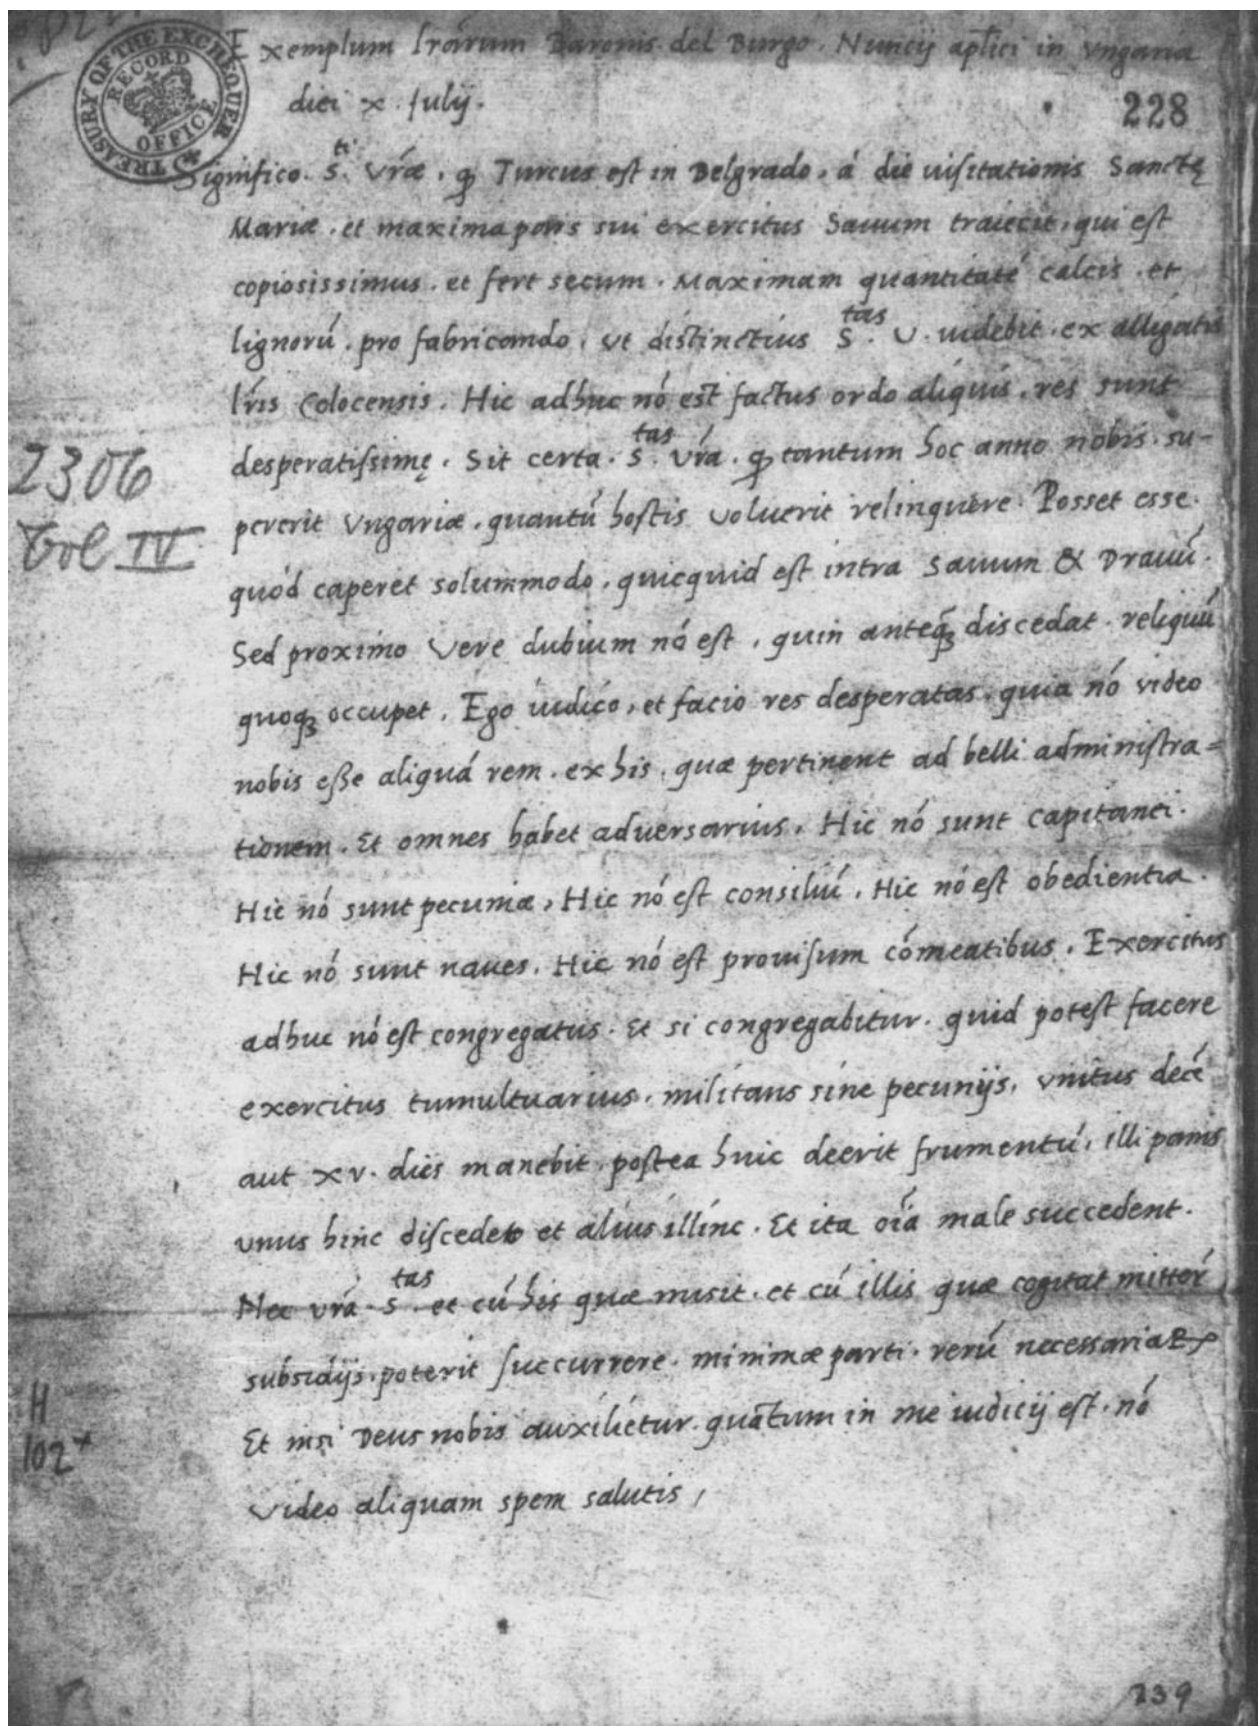 Exemplum lrárum Baronis del Burgo. Nuncij aplici in Vngaria
diei x. Julij.
228
TREASURY OF THE EXCHEQUER
RECORD OFFICE
Significo. S.ti Vrǽ. q Turcus est in Belgrado. á die uisitationis Sanctę
Mariæ. et maxima pars sui exercitus Sauum traiecit, qui est
copiosissimus. et fert secum. Maximam quantitaté calcis. et
lignorú. pro fabricando. ut distinctius S.tas V. uidebit. ex alligatis
lr̃is Colocensis. Hic adhuc nó est factus ordo aliquis. res sunt
desperatissimę. Sit certa. S.tas vr̃a. q tantum hoc anno nobis. su-
pererit Vngariæ. quantú hostis voluerit relinquere. Posset esse.
quód caperet solummodo. quicquid est intra Sauum & Drauú.
Sed proximo Vere dubium nó est, quin anteq̃ꝫ discedat. reliquú
quoqꝫ occupet. Ego iudico, et facio res desperatas. quia nó video
nobis eße aliquá rem. ex his. quæ pertinent ad belli administra=
tionem. Et omnes habet aduersarius. Hic nó sunt capitanei.
Hic nó sunt pecuniæ, Hic nó est consiliú. Hic nó est obedientia.
Hic nó sunt naues. Hic nó est prouisum cómeatibus. Exercitus
adhuc nó est congregatus. Et si congregabitur. quid potest facere
exercitus tumultuarius. militans sine pecunijs. vnitus decé
aut xv. dies manebit. postea huic deerit frumentú. illi panis
vnus hinc discedet et alius illinc. Et ita oı̃a male succedent.
Nec vr̃a. S.tas et cú his quæ misit. et cú illis quæ cogitat mitter
subsidijs. poterit succurrere. minimæ parti. rerú necessaria℞
Et nisi Deus nobis auxilietur. quãtum in me iudicij est. nó
video aliquam spem salutis,
2306
Vol IV
H
102+
239